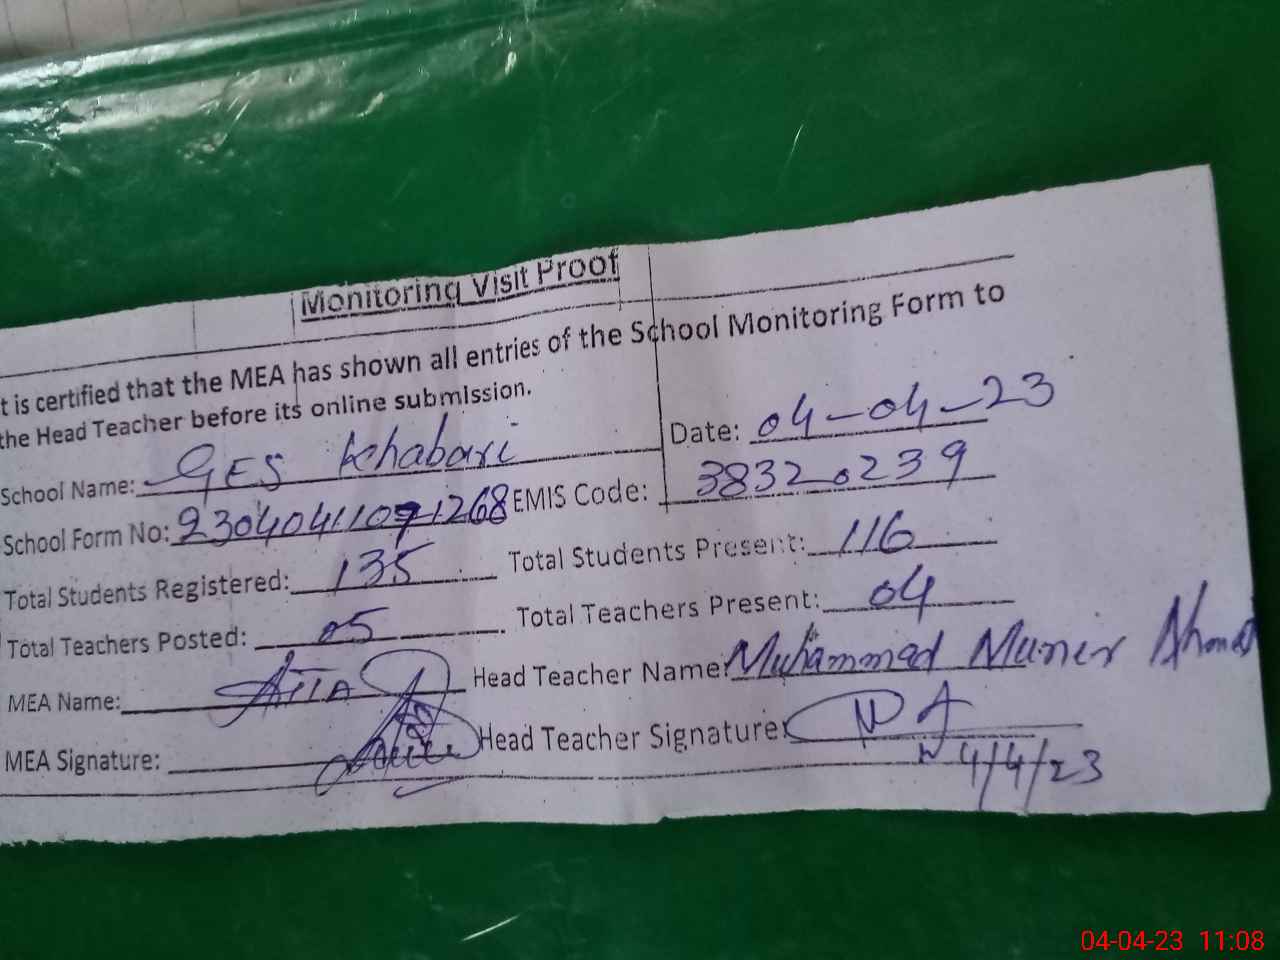 Monitoring Visit Proof
t is certified that the MEA has shown all entries of the School Monitoring Form to
the Head Teacher before its online submission.
School Name: GES Khabari Date: 04-04-23
School Form No: 23040411071268 EMIS Code: 38320239
Total Students Registered: 135 Total Students Present: 116
Total Teachers Posted: 05 Total Teachers Present: 04
MEA Name: Head Teacher Name: Muhammad Muneer Ahmad
MEA Signature: Head Teacher Signature:
4/4/23
04-04-23 11:08